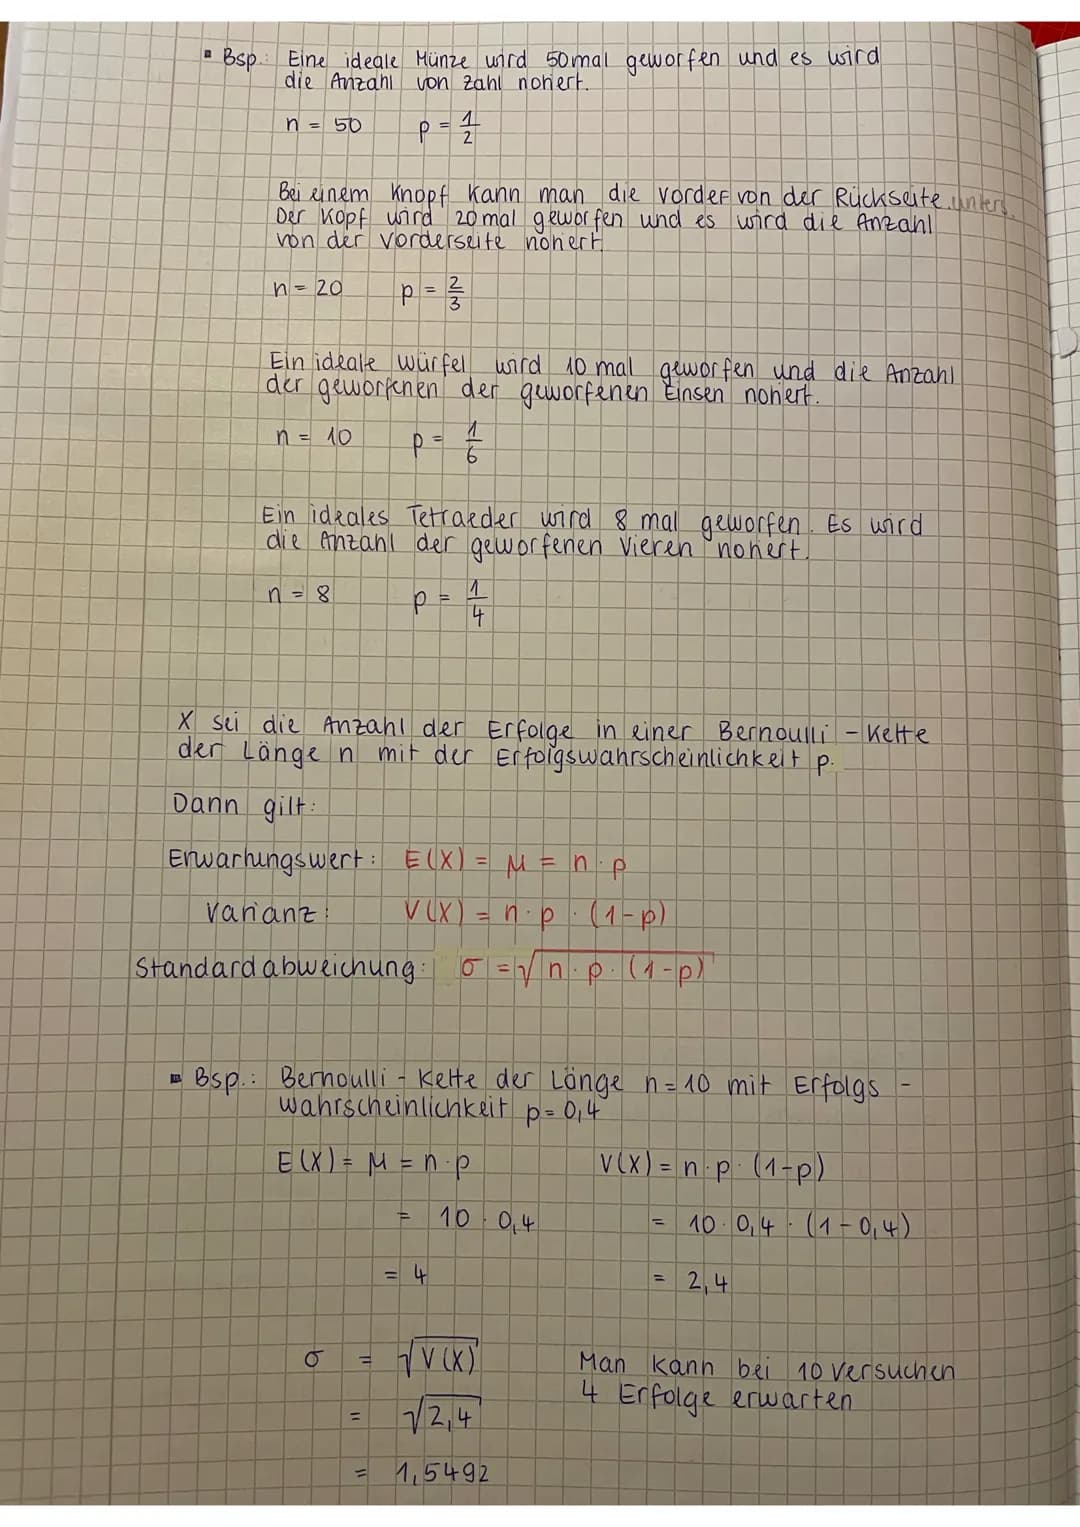 ▪ Bsp.: Eine ideale Münze wird 50mal geworfen und es wird
die Anzahl von Zahl notiert.
n = 50 p = 1/2
Bei einem Knopf kann man die Vorder von der Rückseite unters.
Der Kopf wird 20mal geworfen und es wird die Anzahl
von der Vorderseite notiert.
n = 20 p = 2/3
Ein ideale Würfel wird 10 mal geworfen und die Anzahl
der geworfenen der geworfenen Einsen notiert.
n = 10 p = 1/6
Ein ideales Tetraeder wird 8 mal geworfen. Es wird
die Anzahl der geworfenen Vieren notiert.
n = 8 p = 1/4
X sei die Anzahl der Erfolge in einer Bernoulli - Kette
der Länge n mit der Erfolgswahrscheinlichkeit p.
Dann gilt:
Erwartungswert: E(X) = μ = n · p
Varianz: V(X) = n · p · (1-p)
Standardabweichung: σ = √n · p · (1-p)
▪ Bsp.: Bernoulli - Kette der Länge n = 10 mit Erfolgs -
wahrscheinlichkeit p = 0,4
E(X) = μ = n · p V(X) = n · p · (1-p)
= 10 · 0,4 = 10 · 0,4 · (1 - 0,4)
= 4 = 2,4
σ = √V(X) Man kann bei 10 Versuchen
= √2,4 4 Erfolge erwarten
= 1,5492